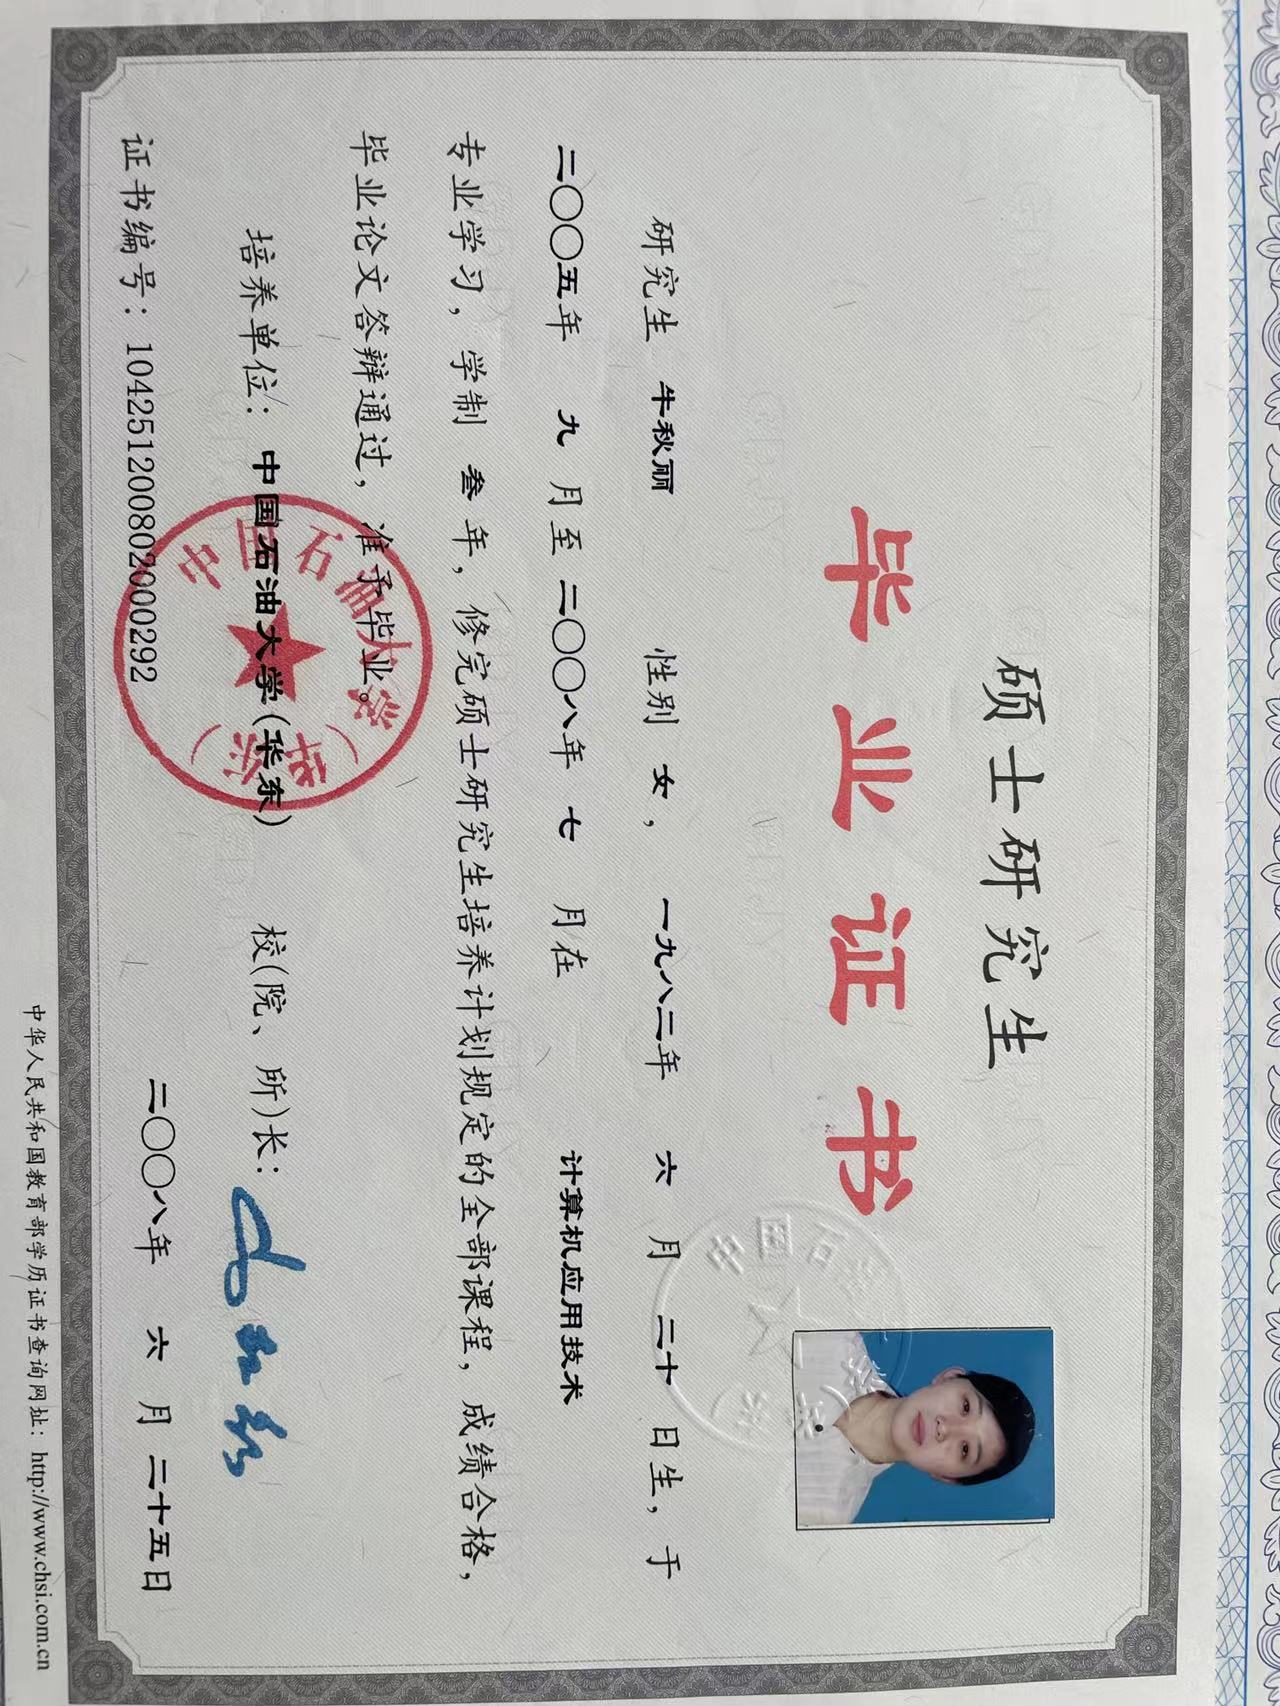 硕士研究生
毕业证书
研究生 牛秋丽 性别 女， 一九八二年 六 月 二十 日生，于
二〇〇五年 九 月至 二〇〇八年 七 月在 计算机应用技术
专业学习，学制 叁 年，修完硕士研究生培养计划规定的全部课程，成绩合格，
毕业论文答辩通过，准予毕业。
培养单位：中国石油大学(华东) 校(院、所)长：
证书编号：104251200802000292 二〇〇八年 六 月 二十五日
中国石油大学（华东）
中华人民共和国教育部学历证书查询网址：http://www.chsi.com.cn